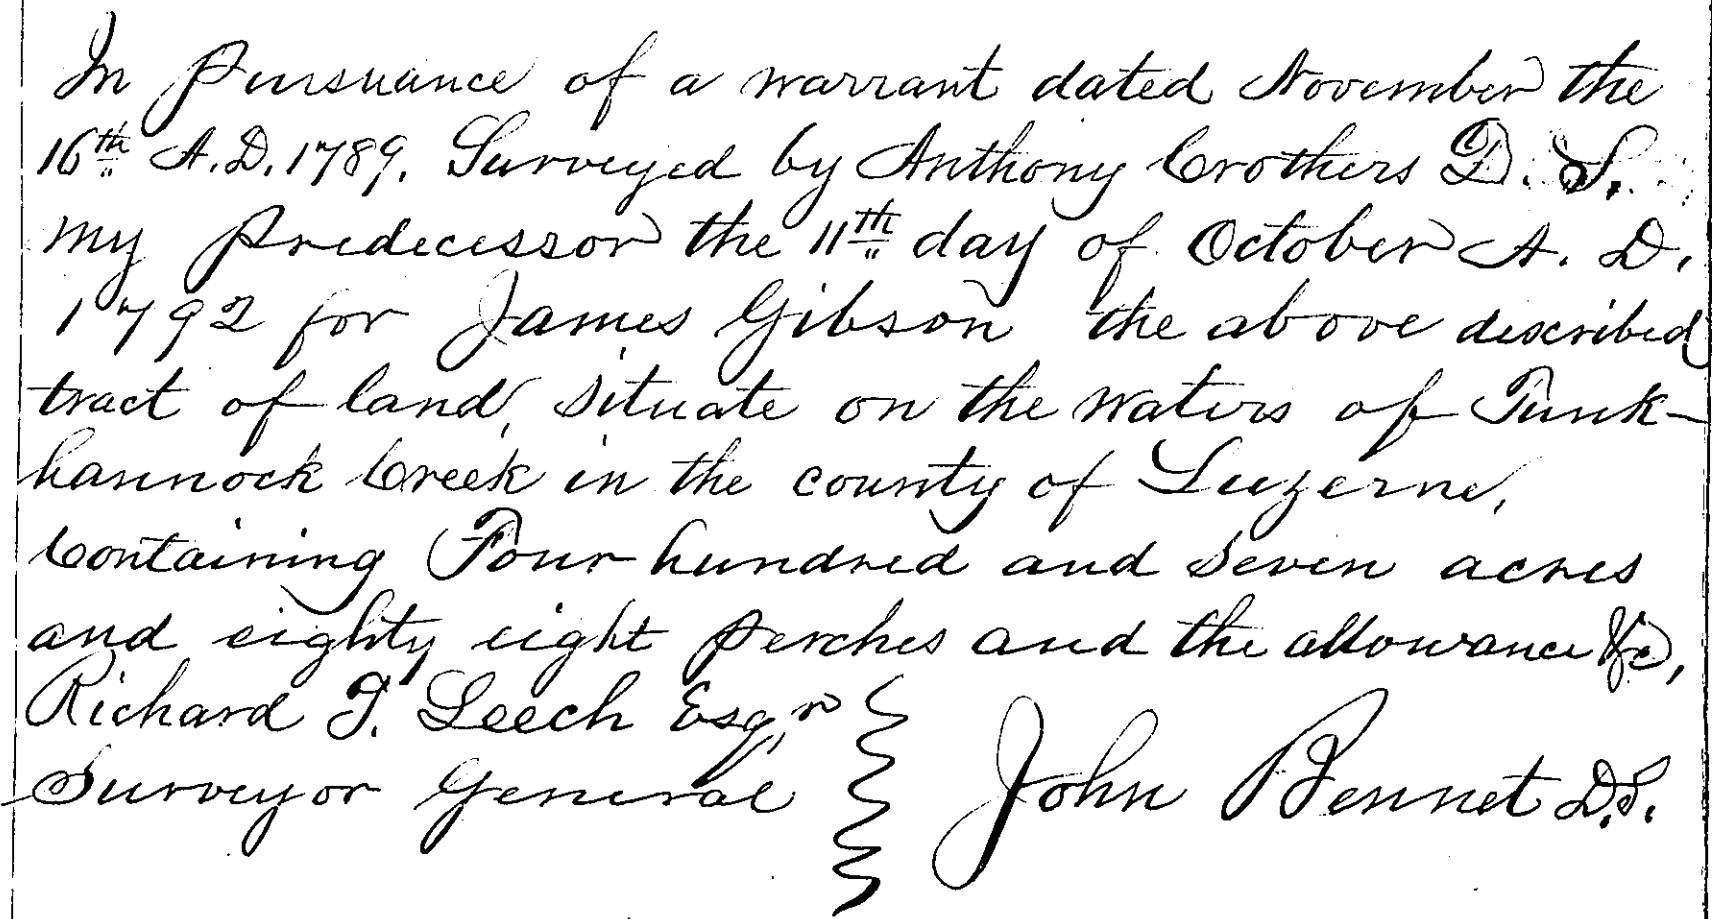 In pursuance of a warrant dated November the
16th A.D. 1789. Surveyed by Anthony Crothers D. S.
my predecessor the 11th day of October A. D.
1792 for James Gibson the above described
tract of land, situate on the waters of Tunk-
hannock Creek in the county of Luzerne,
Containing Four hundred and seven acres
and eighty eight perches and the allowance &c,
Richard T. Leech Esqr.
Surveyor General
John Bennet D.S.